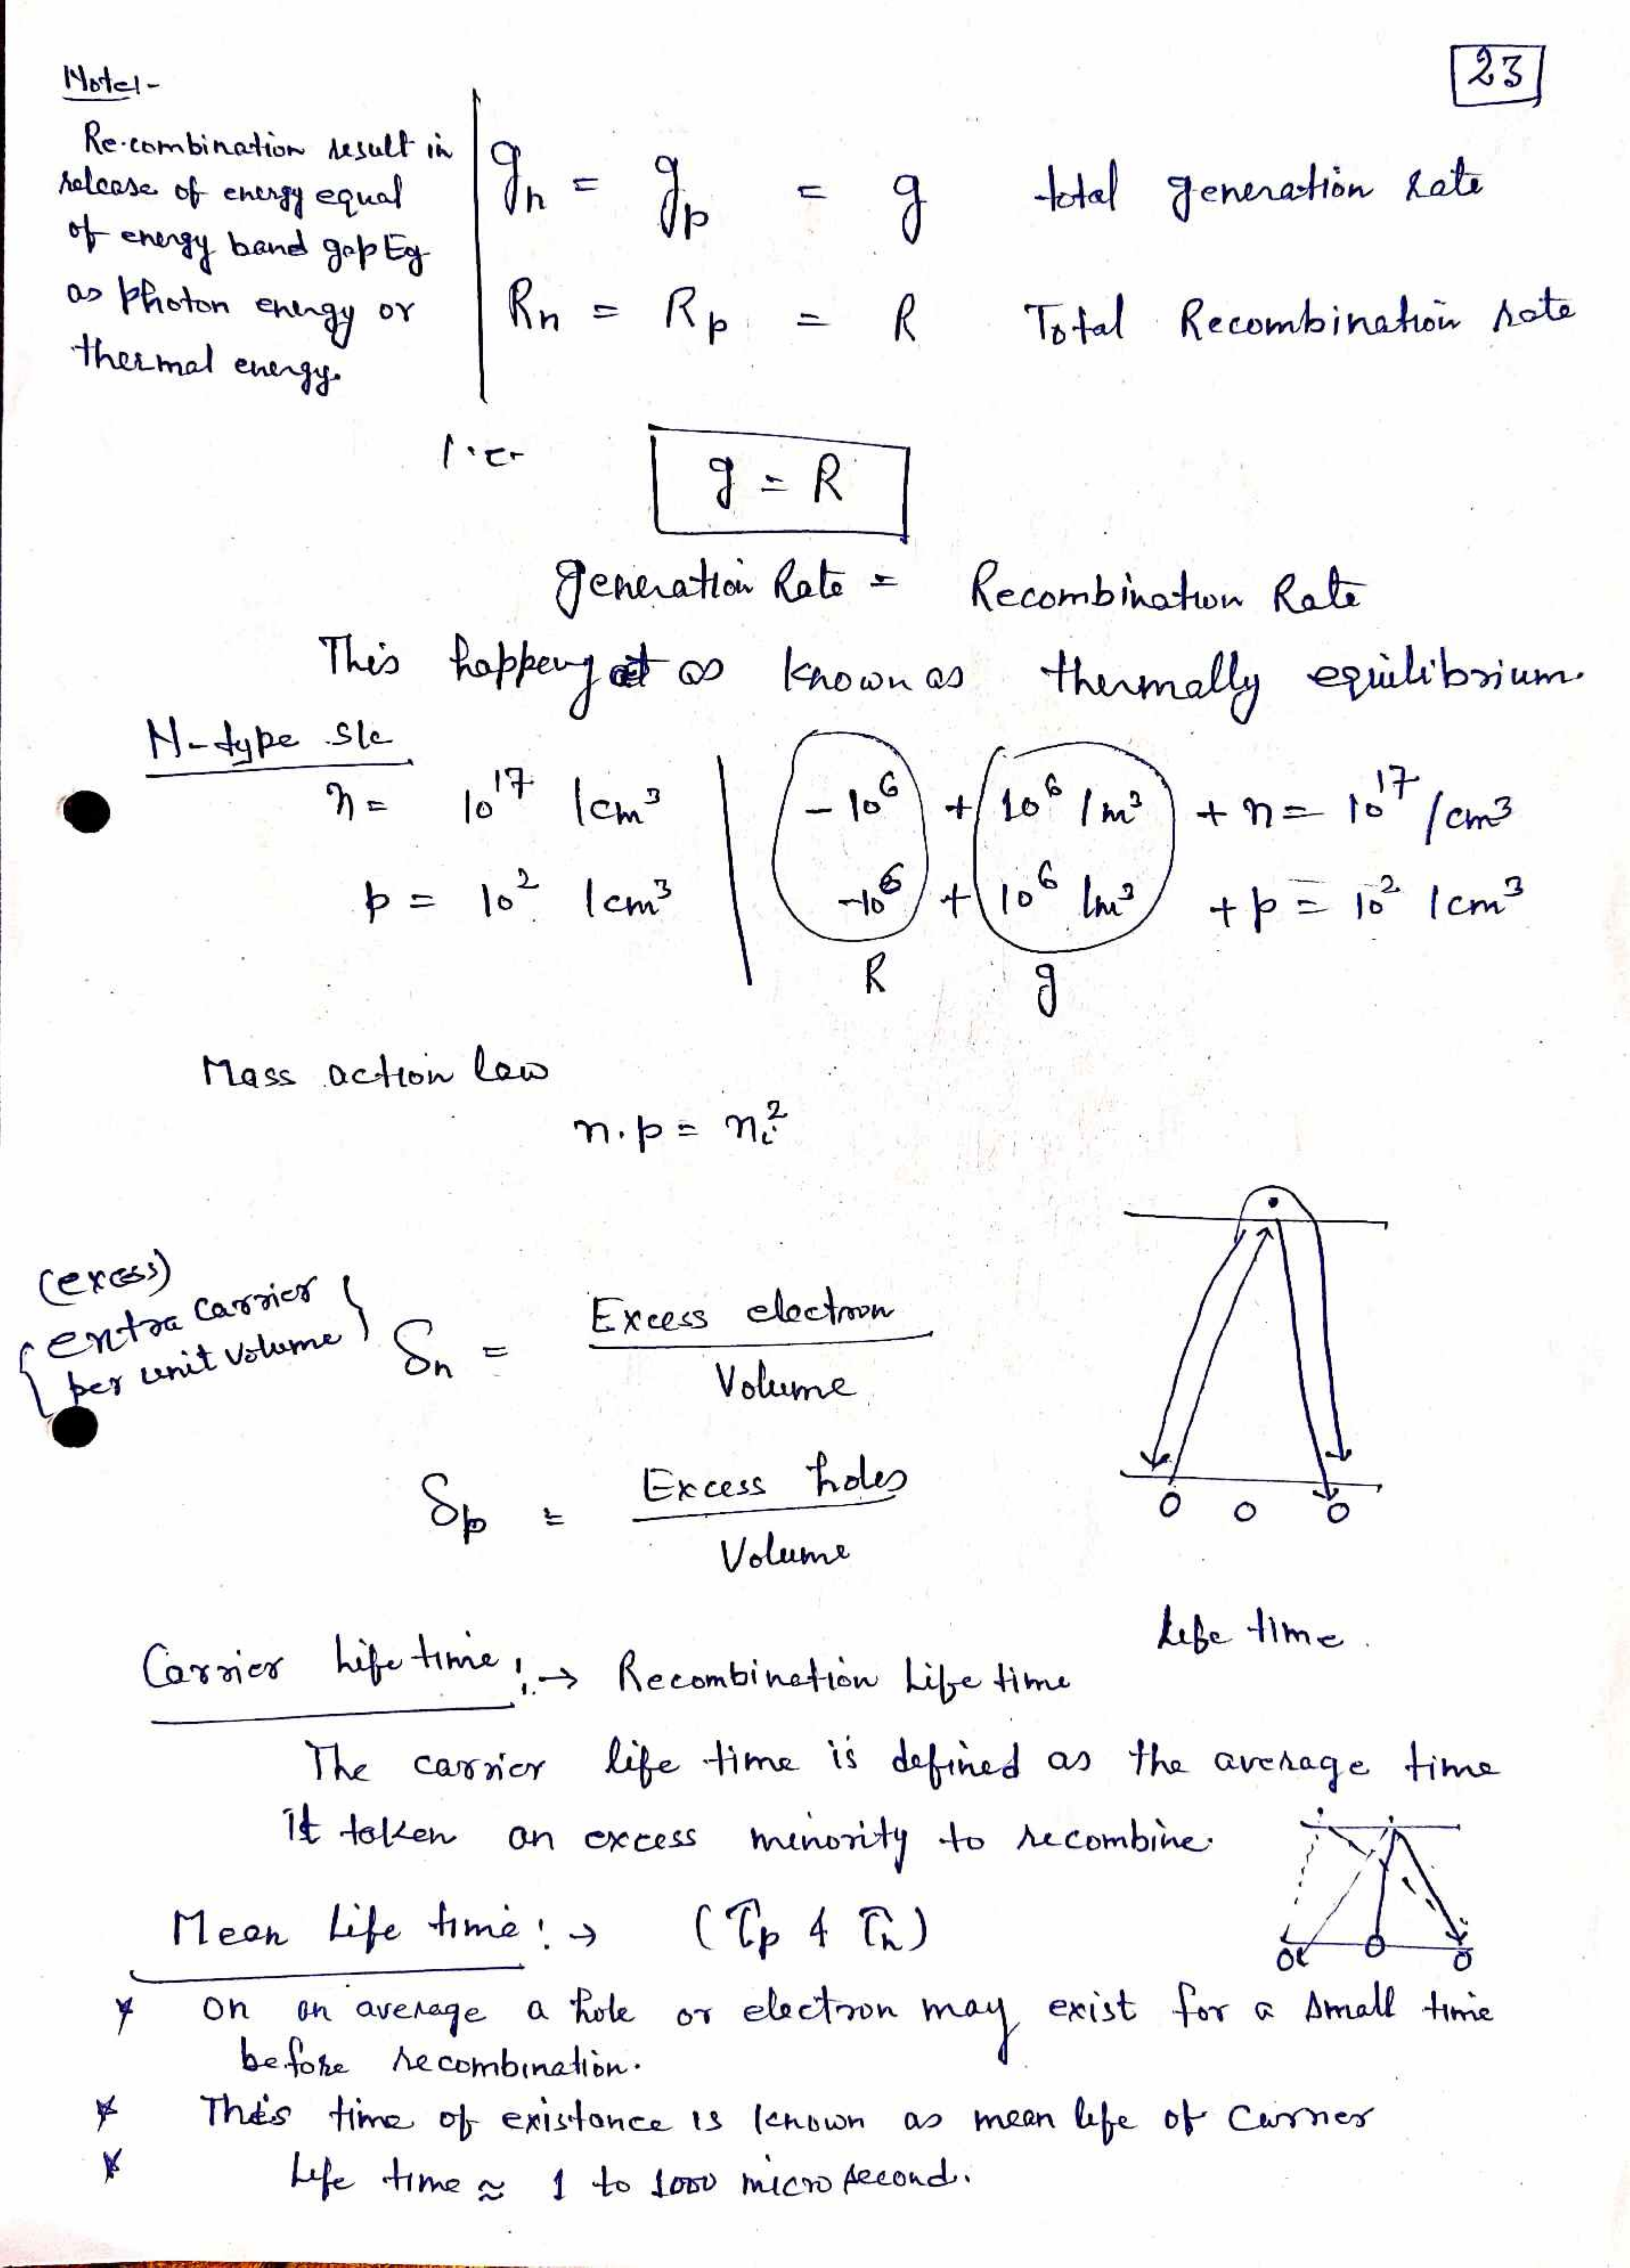 23
Note:-
Re-combination result in
release of energy equal
of energy band gap Eg
as photon energy or
thermal energy.
gn = gp = g total generation rate
Rn = Rp = R Total Recombination rate
i.e-
g = R
generation Rate = Recombination Rate
This happeng at as known as thermally equilibrium.
N-type s/c
n = 10^17 /cm³ | -10^6 + 10^6 /m³ + n = 10^17 /cm³
p = 10² /cm³ | -10^6 + 10^6 /m³ + p = 10² /cm³
R g
Mass action law
n.p = ni²
(excess)
{extra carrier
per unit volume}
δn = Excess electron
Volume
δp = Excess holes
Volume
O O O
Life time.
Carrier Life time :→ Recombination Life time
The carrier life time is defined as the average time
it taken an excess minority to recombine.
Mean Life time :→ (τp & τn)
* On an average a hole or electron may exist for a small time
before recombination.
* This time of existance is known as mean life of carrier
* Life time ≈ 1 to 1000 micro second.